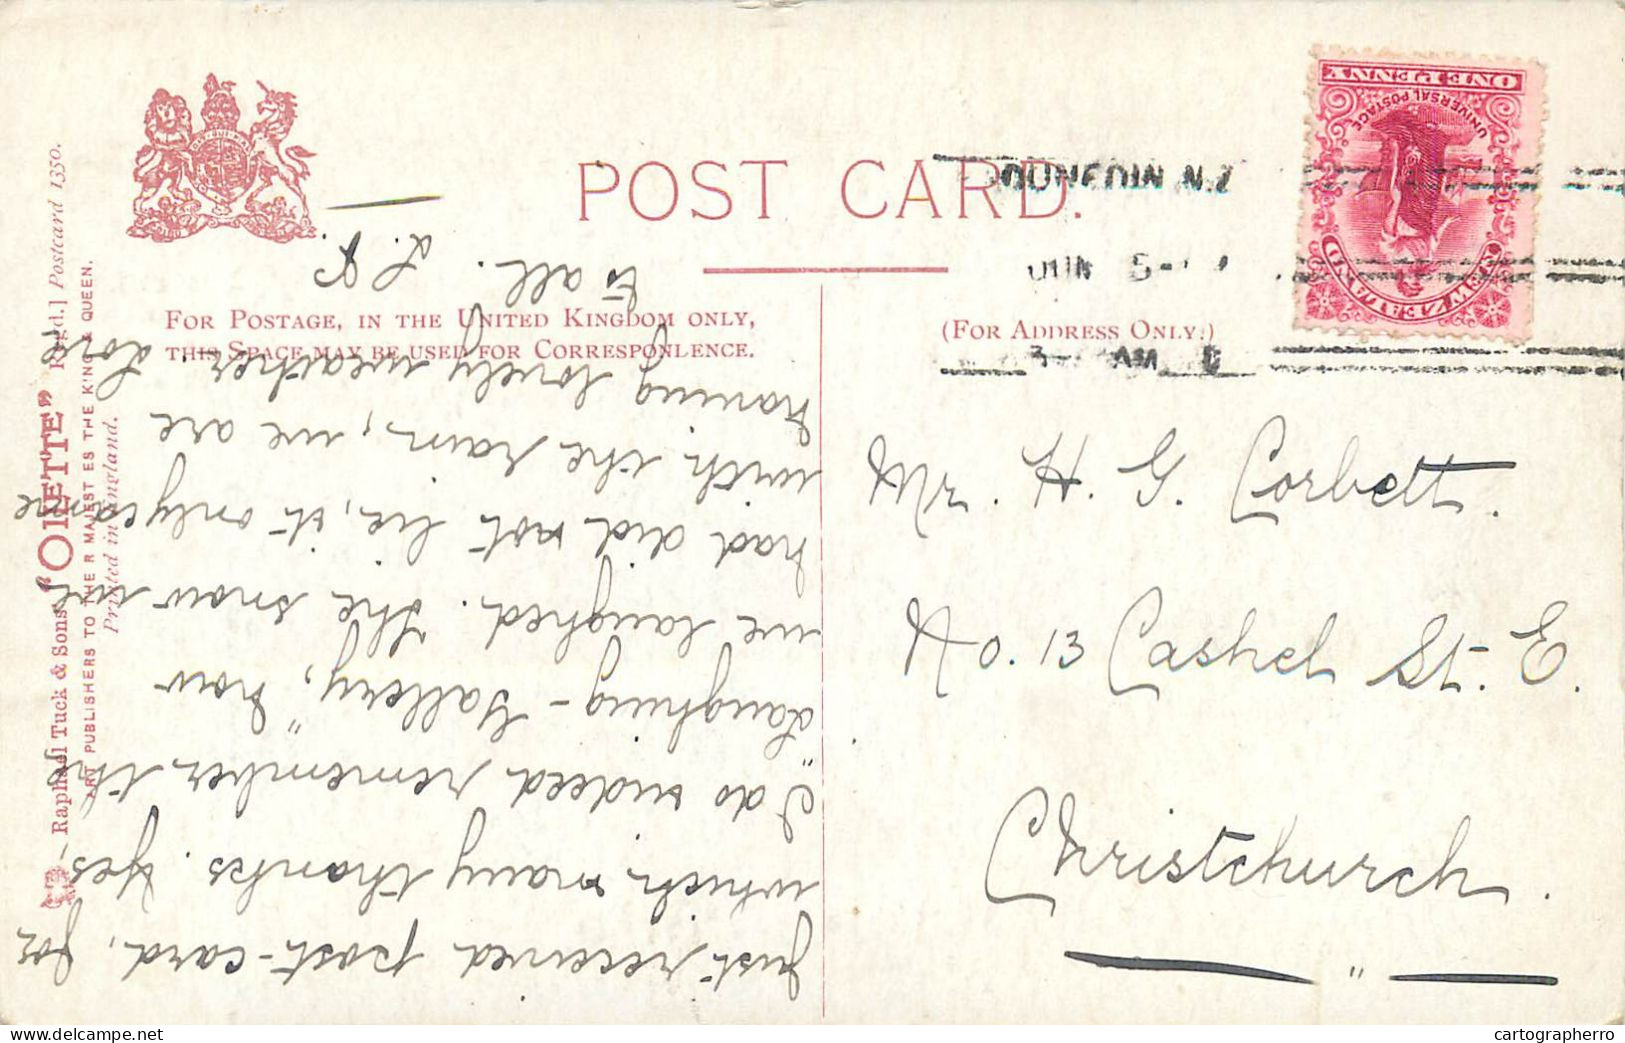 POST CARD.
FOR POSTAGE, IN THE UNITED KINGDOM ONLY,
THIS SPACE MAY BE USED FOR CORRESPONLENCE.
(FOR ADDRESS ONLY.)
Raphael Tuck & Sons "OILETTE" [Reg'd.] Postcard 1350.
ART PUBLISHERS TO THE R MAJEST ES THE KING & QUEEN.
Printed in England.
DUNEDIN N.Z
JUN 5-
3- AM
NEW ZEALAND
UNIVERSAL POSTAGE
ONE PENNY
Mr. H. G. Corbett.
No. 13 Cashel St. E.
Christchurch.
Just received post-card, for
which many thanks. Yes
I do indeed remember the
"Laughing-Gallery," how
we laughed. The snow we
had did not lie, it only came
with the rain, we are
having lovely weather. Love
to all.
cartographerro